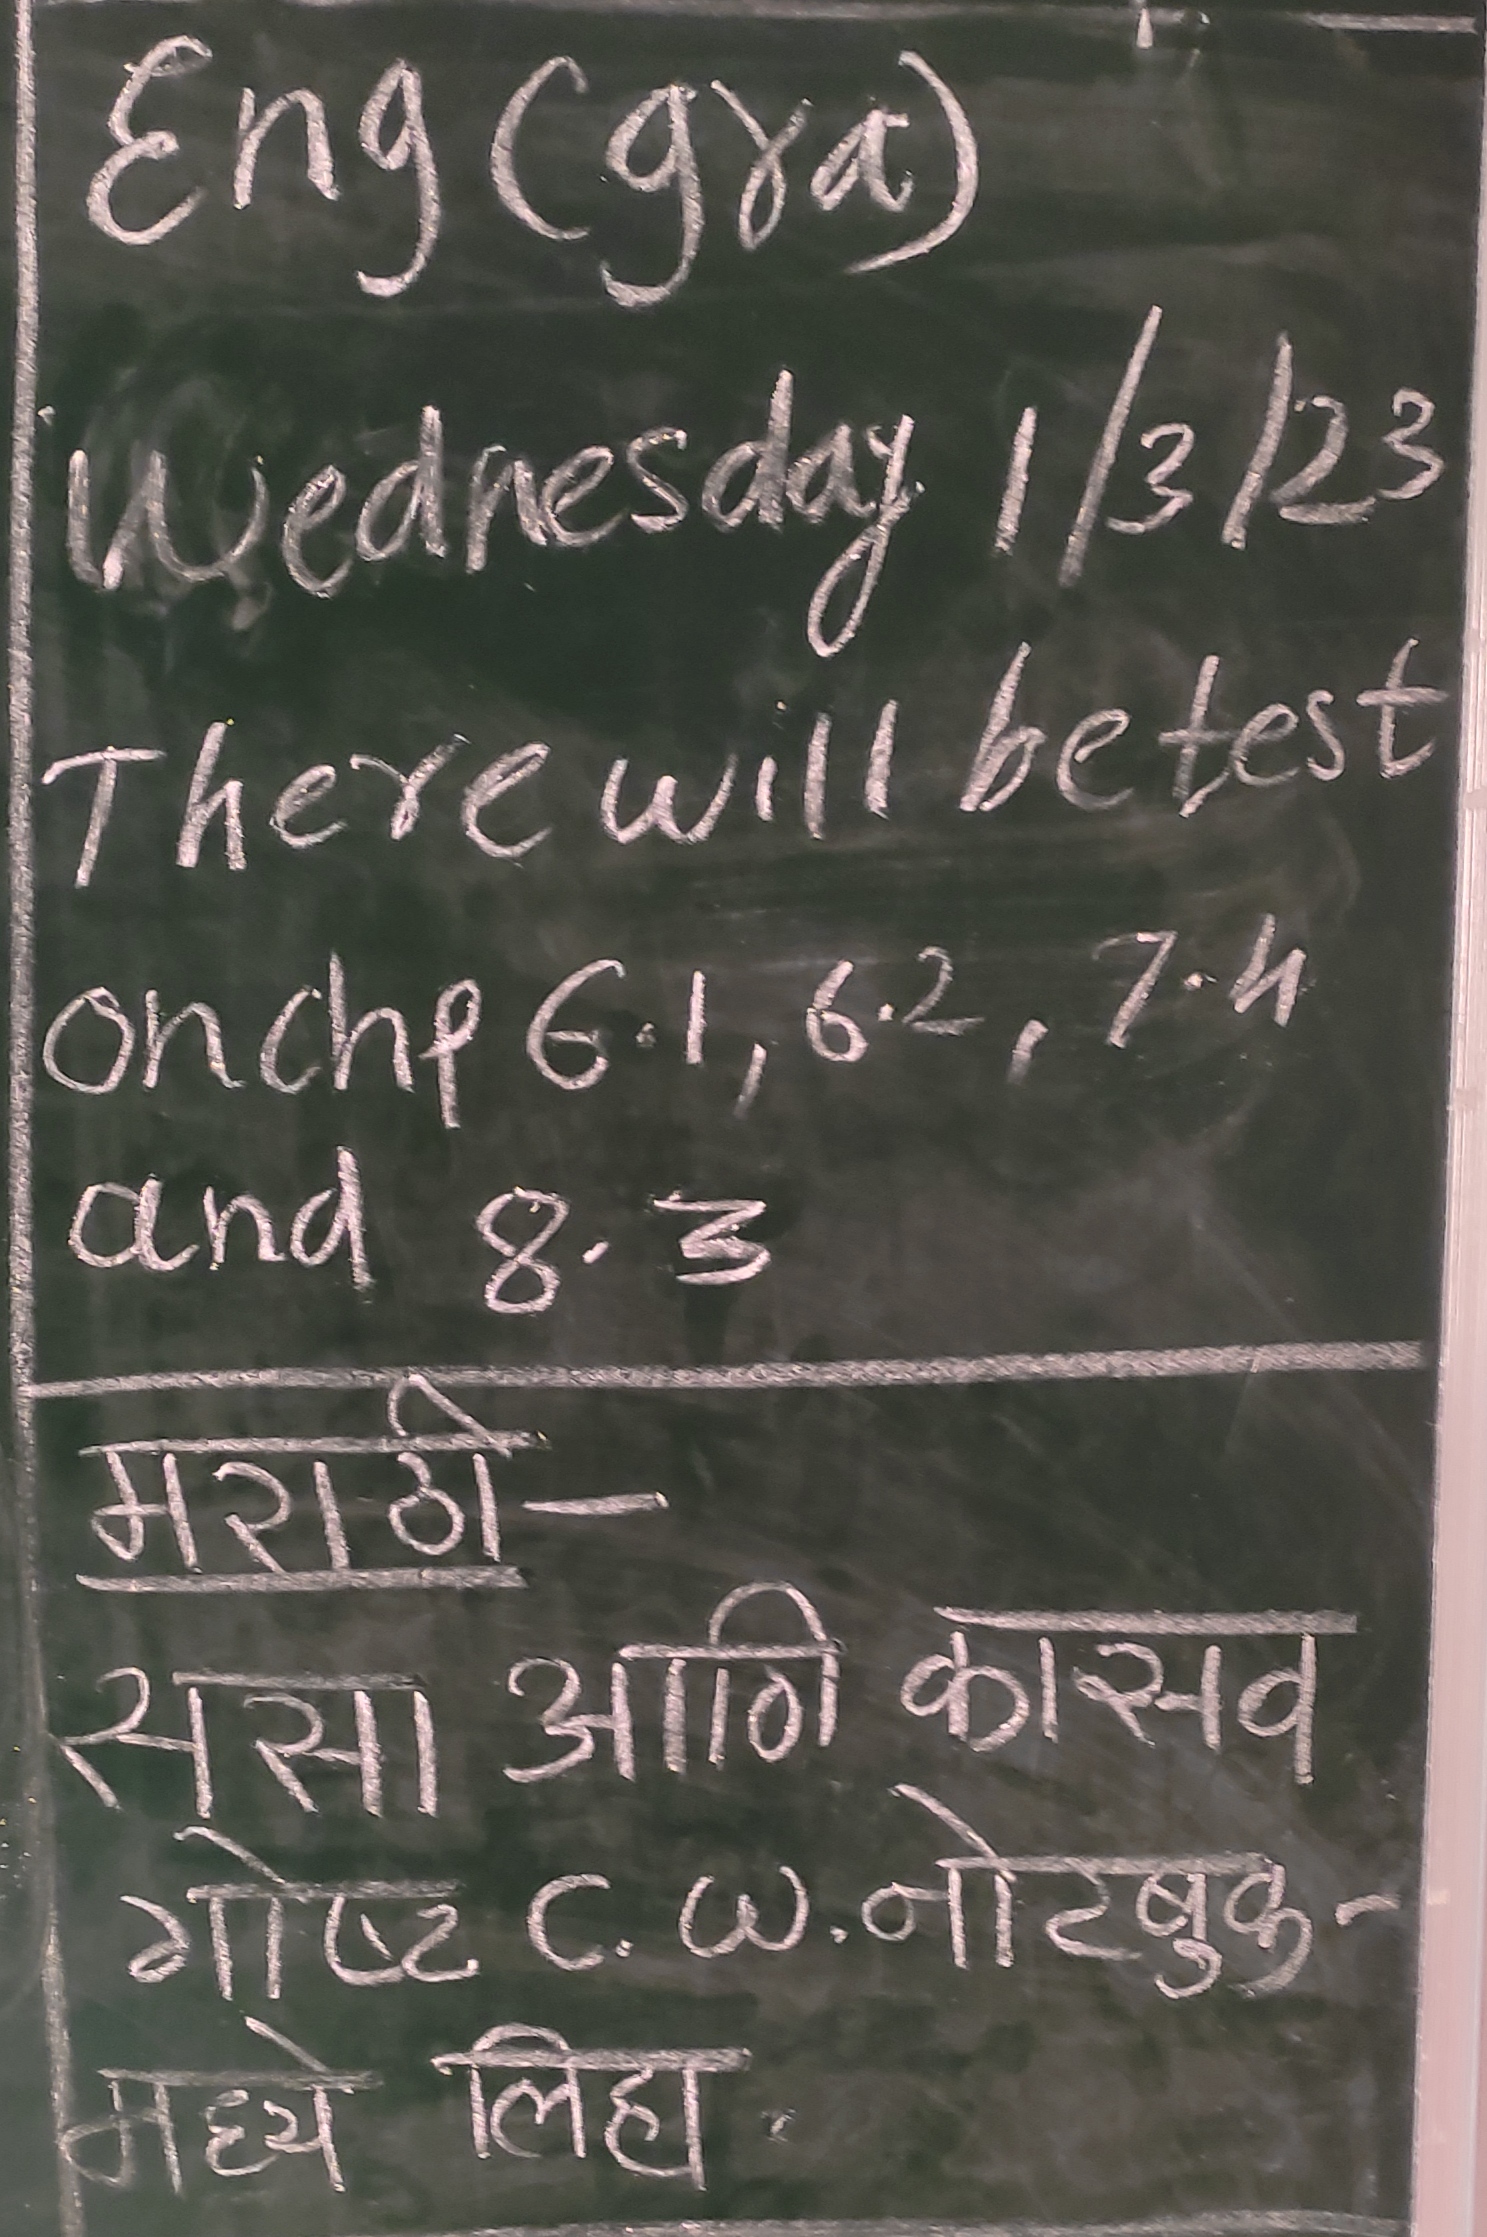 Eng (gra)
Wednesday 1/3/23
There will be test
on chp 6.1, 6.2, 7.4
and 8.3
मराठी -
ससा आणि कासव
गोष्ट C.W. नोटबुक -
मध्ये लिहा.